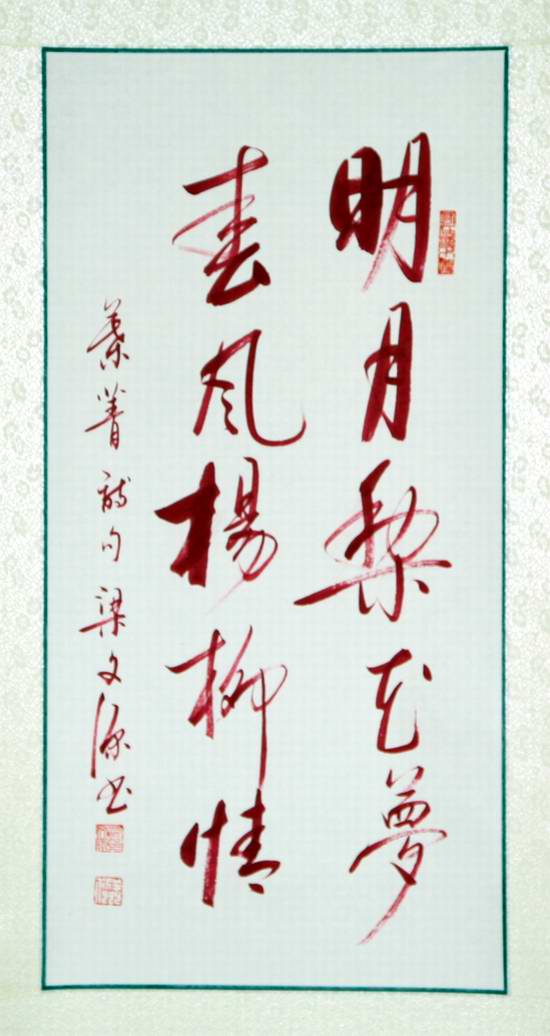 明月梨花夢
春風楊柳情
葉菁诗句梁文源书